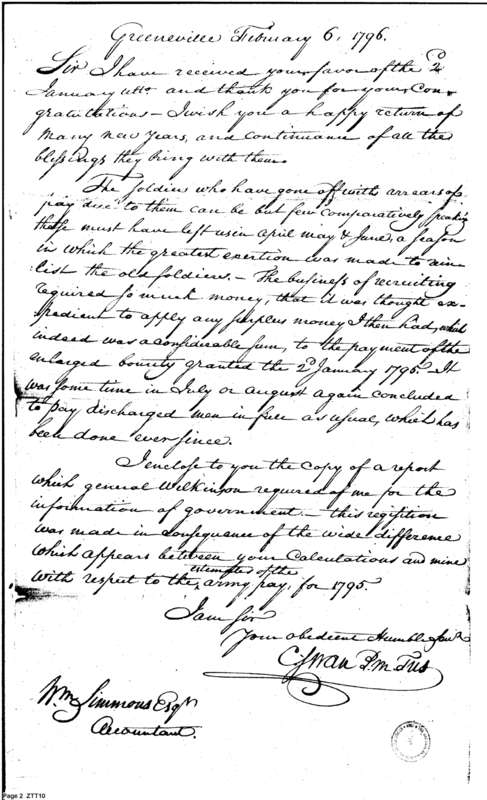 Greeneville February 6, 1796.
Sir I have received your favor of the 2d
January ulto. and thank you for your Con-
gratulations – I wish you a happy return of
many new years, and continuance of all the
blessings they bring with them.
The soldiers who have gone off with arrears of
pay due to them can be but few comparatively speaking
these must have left us in april may & June, a season
in which the greatest exertion was made to rein-
list the old soldiers. – The business of recruiting
required so much money, that it was thought ex-
pedient to apply any surplus money I then had, which
indeed was a considerable sum, to the payment of the
enlarged bounty granted the 2d January 1795. It
was some time in July or august again concluded
to pay discharged men in full as usual, which has
been done ever since.
I enclose to you the Copy of a report
which general Wilkinson required of me for the
information of government. – this requisition
was made in Consequence of the wide difference
which appears between your Calculations and mine
with respect to the estimates of the army pay, for 1795.
I am Sir
Your obedient Humble Servt.
C Swan P.M. Tus
Wm Simmons Esqr
Accountant.
Page 2 ZTT10